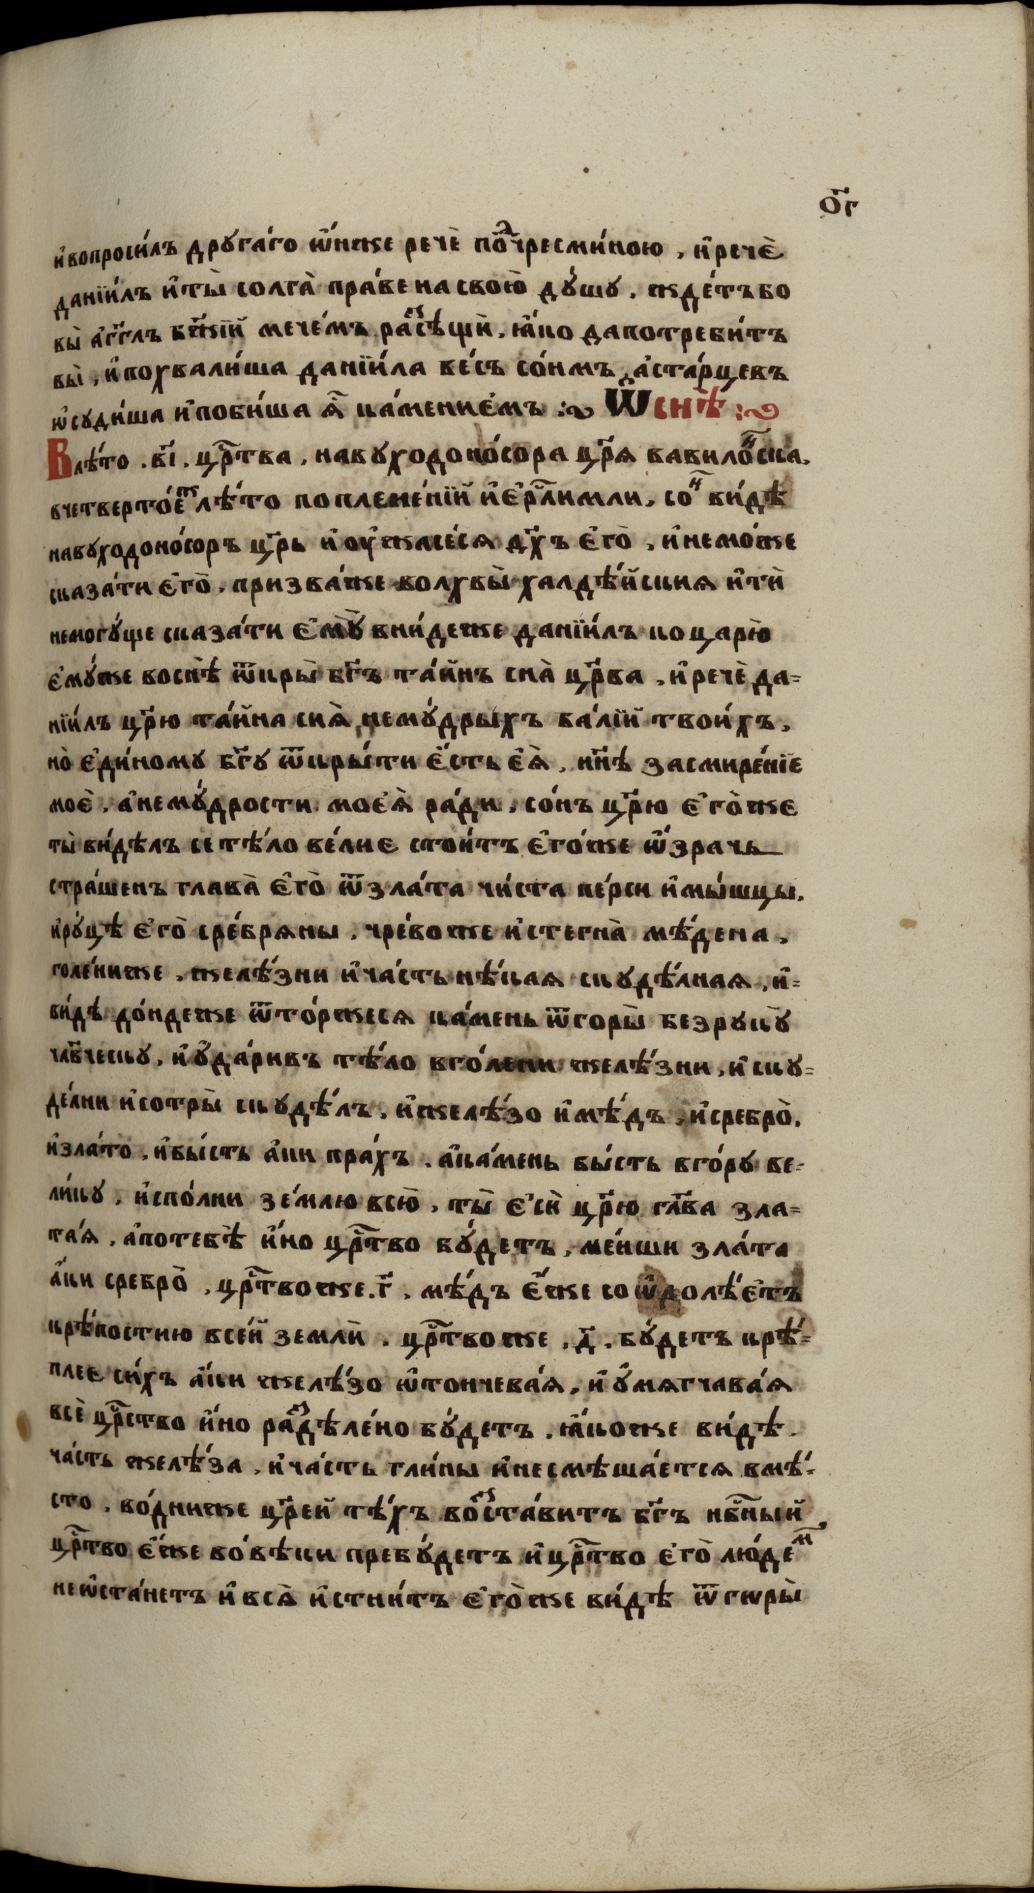 о҃г
и҆вопроси́лъ другаго ѿнꙋже речѐ по́дчресми́ною , и҆речѐ
данїи́лъ и҆ты̀ солга̀ пра́ве насвою̀ дꙋ́шу . жде́тъбо
вы̀ а҆́гг҃лъ бж҃їй мече́мъ разсѣщѝ , ꙗ҆́ко дапотреби́тъ
вы̀ , и҆похвали́ша данїи́ла ве́сь со́нмъ , а҆ста́рцевъ
ѡ҆суди́ша и҆поби́ша ѧ҆̀ ка́менїемъ :~ Ѡ҆ снѣ̀ :~
В лѣ́то . в҃і . црⷭ҇тва , навуходоно́сора цр҃ѧ вавило́нска ,
вчетверто́еже лѣ́то поплене́нїй и҆ єр҆ли́мли , со́нъ ви́дѣ
навуходоно́соръ цр҃ь и҆ оу҆жасе́сѧ дх҃ъ є҆го̀ , и҆немо́же
сказа́ти є҆го̀ . призва́же волхвы̀ халдѣ́йскиѧ и҆тѝ
немогꙋ́ще сказа́ти є҆мꙋ̀ вни́деже данїи́лъ ко царю̀
є҆мꙋ́же воснѣ̀ ѿкры̀ бг҃ъ та́йнъ сна̀ цр҃ва . и҆речѐ да=
нїи́лъ цр҃ю та́йна сиѧ̀ немꙋ́дрыхъ ба́лїй твои́хъ ,
но̀ є҆ди́ному бг҃у ѿкры́ти є҆́сть є҆ѧ̀ , нн҃ѣ засмире́нїе
моѐ , а҆немꙋ́дрости моеѧ̀ ра́ди . со́нъ цр҃ю є҆го̀же
ты̀ ви́дѣлъ се тѣ́ло ве́лие стои́тъ є҆го́же ѡ҆́зрачь
стра́шенъ глава̀ є҆го̀ ѿзла́та чи́ста пе́рси и҆мы́шцы ,
и҆рꙋ́цѣ є҆го̀ сре́брѧны , чре́воже и҆стегна̀ мѣ́дена ,
голе́ниже , желѣ́зни и҆ча́сть нѣ́каѧ скудѣ́лнаѧ , и҆=
ви́дѣ до́ндеже ѿто́ржесѧ ка́мень ѿгоры̀ безрукꙋ̀
чл҃ческу , и҆ оу҆да́ривъ тѣ́ло вго́лени желѣ́зни , и҆ску=
де́лни и҆сотры̀ скудѣ́лъ , и҆желѣ́зо и҆мѣ́дъ , и҆сребро̀ ,
и҆зла́то , и҆бы́сть а҆́ки пра́хъ . а҆ка́мень бы́сть вго́ру ве=
ли́ку , и҆спо́лни зе́млю всю̀ , ты̀ є҆сѝ цр҃ю гл҃ва зла=
та́ѧ , а҆потебѣ̀ и҆́но црⷭ҇тво бꙋ́детъ , ме́нши зла́та
а҆́ки сребро̀ , црⷭ҇твоже . г҃ . мѣ́дъ є҆́же соѡ҆долѣ́етъ
крѣ́постию все́й землѝ . црⷭ҇твоже . д҃ . бꙋ́детъ крѣ́=
плее си́хъ а҆́ки желѣ́зо ѡ҆тончева́ѧ , и҆ оу҆мѧгчава́ѧ
всѐ цр҃ство и҆́но раздѣле́но бꙋ́детъ . ꙗ҆́коже ви́дѣ
ча́сть желѣ́за , и҆ча́сть гли́ны и҆несмѣша́етсѧ вмѣ́=
сто . во́дниже цр҃ей тѣ́хъ возста́витъ бг҃ъ нб҃ный ,
црⷭ҇тво є҆́же во́вѣки пребꙋ́детъ и҆ црⷭ҇тво є҆го̀ лю́демъ
неѡ҆ста́нетъ и҆ всѧ̀ и҆стни́тъ є҆го̀же ви́дѣ ѿ гѡры̀